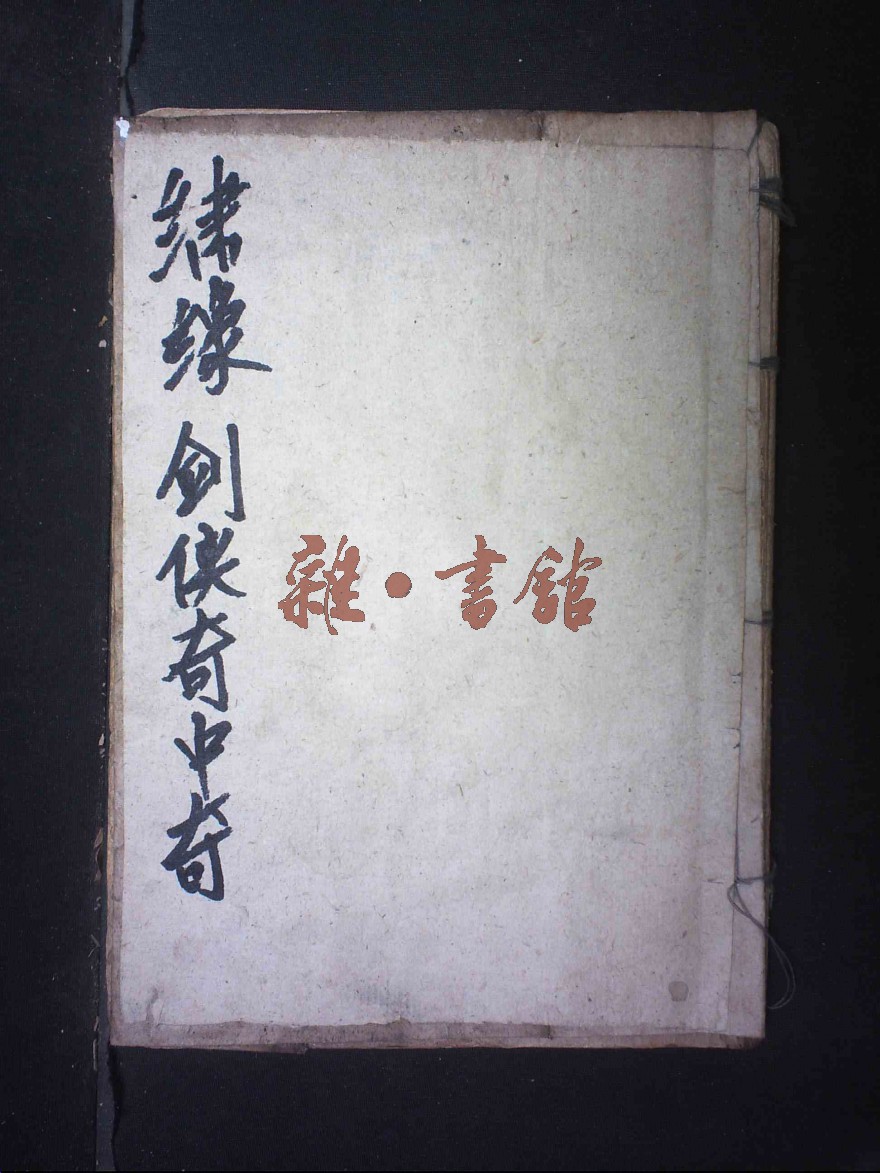 繡缘 剑侠奇中奇
雜·書館